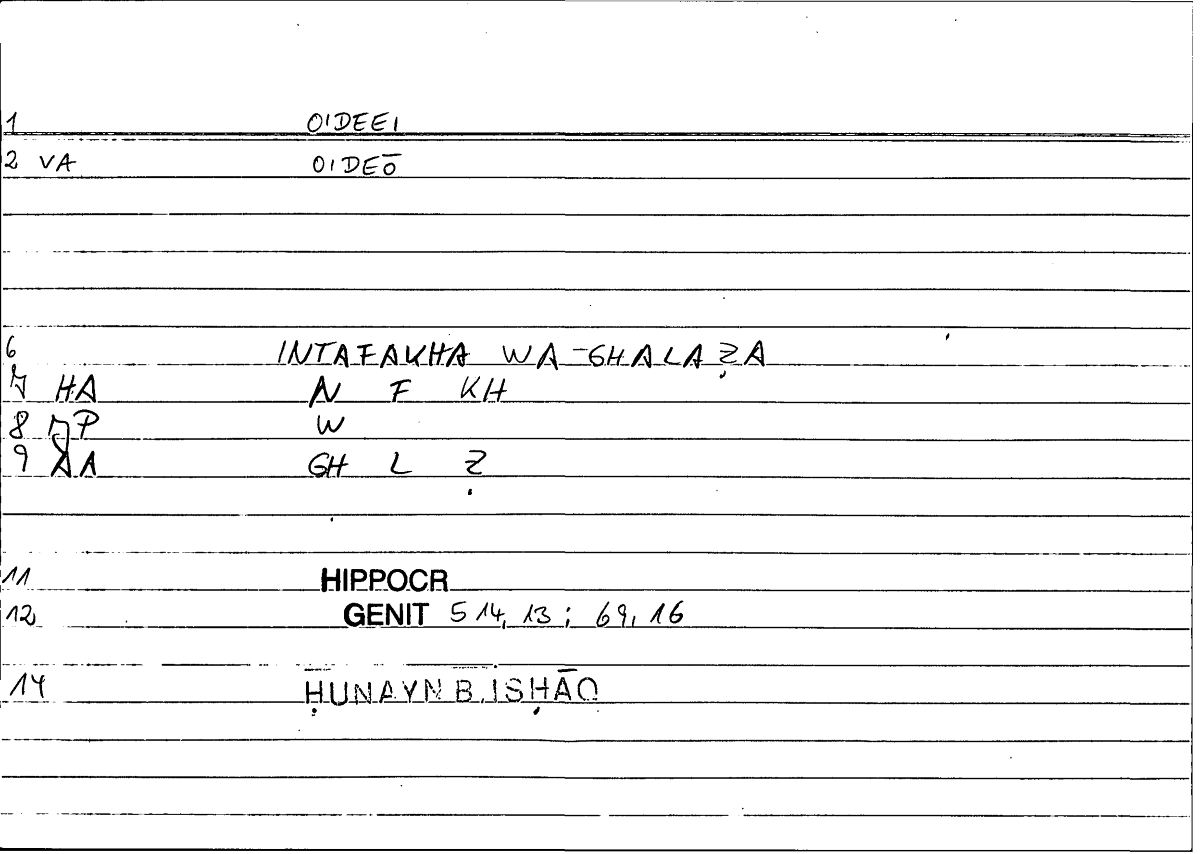 1 OIDEEI
2 VA OIDEŌ
6 INTAFAKHA WA-GHALAẒA
7 HA N F KH
8 P W
9 AA GH L Ẓ
11 HIPPOCR
12 GENIT 5 14, 13 ; 69, 16
14 ḤUNAYN B. ISḤĀQ